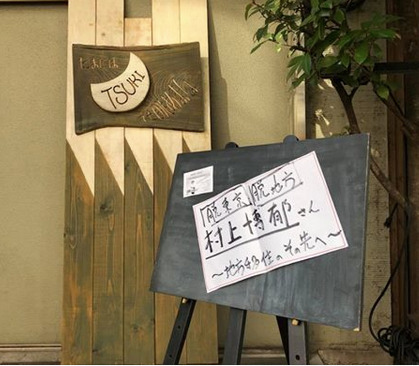 TSUKI
脱東京 脱地方
村上博郁さん
〜地方移住のその先へ〜